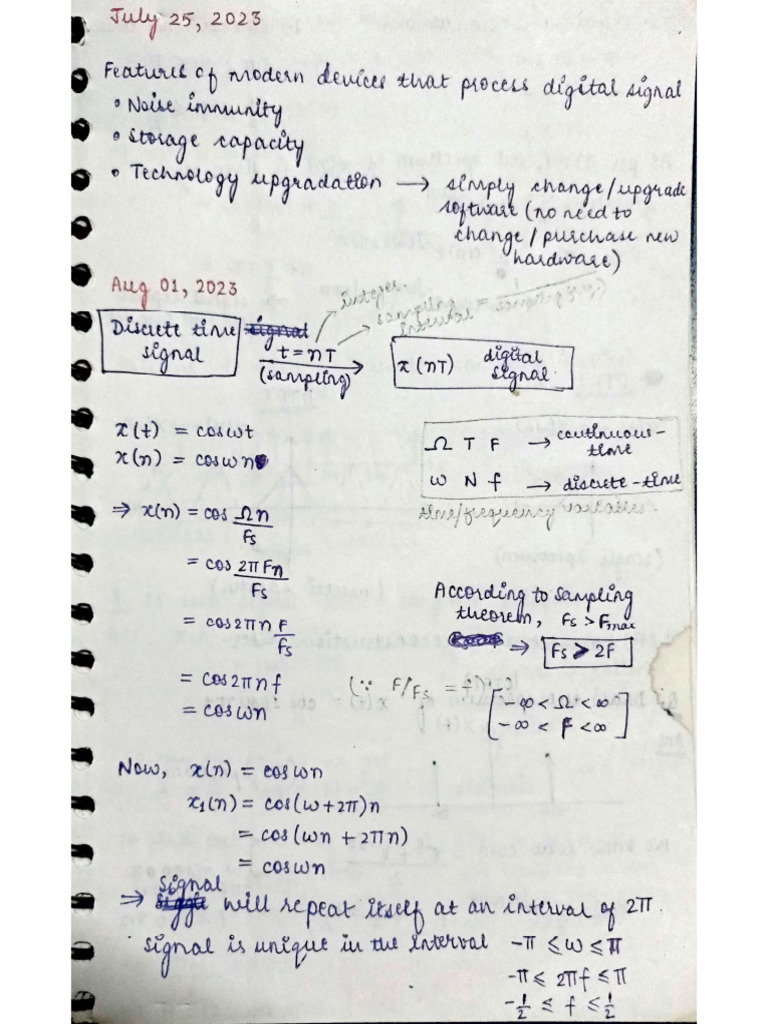 July 25, 2023
Features of modern devices that process digital signal
• Noise immunity
• Storage capacity
• Technology upgradation → simply change/upgrade
software (no need to
change/purchase new
hardware)
Aug 01, 2023
integer
sampling
interval
Discrete time
signal
t = nT
(sampling)
x(nT) digital
signal
x(t) = cosωt
x(n) = cosωn
Ω T F → continuous-
time
ω N f → discrete-time
time/frequency variables
⇒ x(n) = cos Ωn/Fs
= cos 2πFn/Fs
= cos2πn F/Fs
= cos2πnf (∵ F/Fs = f)
= cosωn
According to sampling
theorem, Fs > Fmax
⇒ Fs > 2F
-∞ < Ω < ∞
-∞ < F < ∞
Now, x(n) = cosωn
x1(n) = cos(ω+2π)n
= cos(ωn + 2πn)
= cosωn
⇒ Signal will repeat itself at an interval of 2π.
Signal is unique in the interval -π ≤ ω ≤ π
-π ≤ 2πf ≤ π
-1/2 ≤ f ≤ 1/2